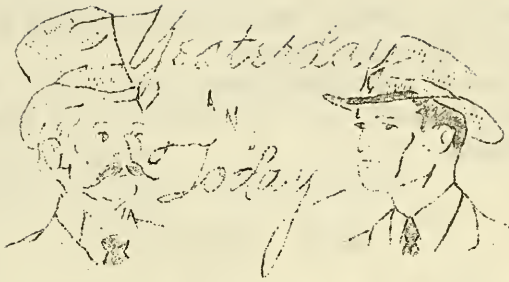 Yesterday
AN
Today